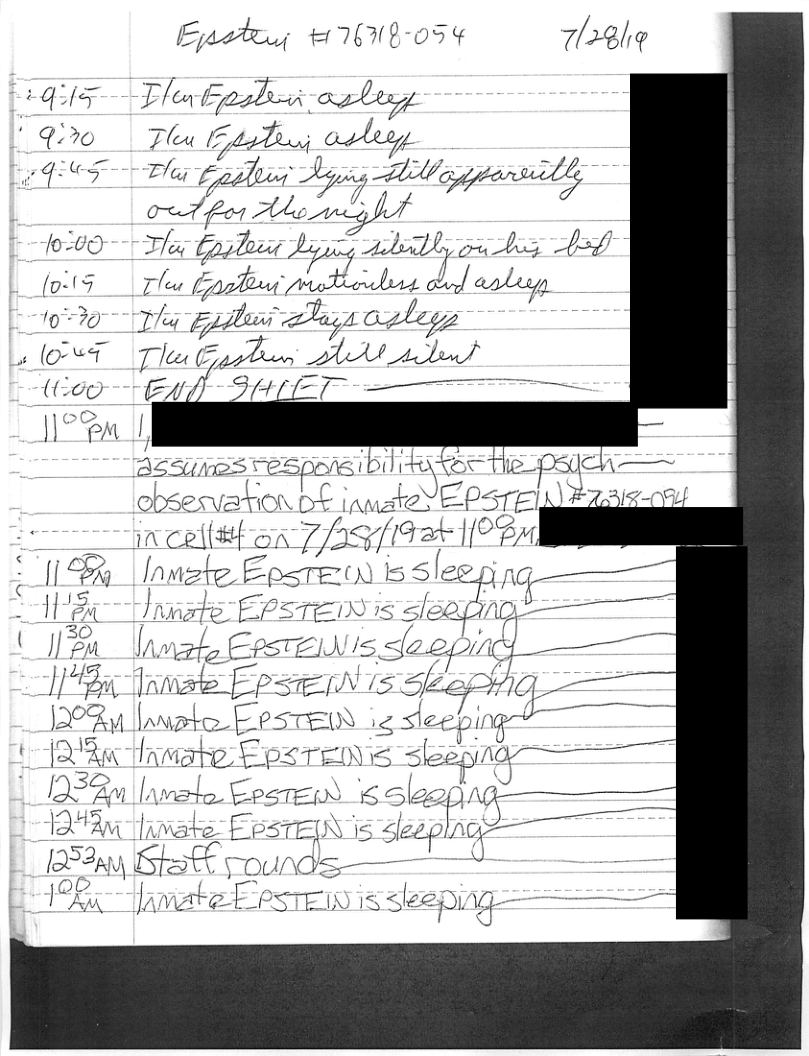 Epstein #76318-054 7/28/19
9:15 I/m Epstein asleep
9:30 I/m Epstein asleep
9:45 I/m Epstein lying still apparently
out for the night
10:00 I/m Epstein lying silently on his bed
10:15 I/m Epstein motionless and asleep
10:30 I/m Epstein stays asleep
10:45 I/m Epstein still silent
11:00 END SHIFT
11:00 PM I,
assumes responsibility for the psych
observation of inmate EPSTEIN #76318-054
in cell #4 on 7/28/19 at 11:00 PM.
11:00 PM Inmate EPSTEIN is sleeping
11:15 PM Inmate EPSTEIN is sleeping
11:30 PM Inmate EPSTEIN is sleeping
11:45 PM Inmate EPSTEIN is sleeping
12:00 AM Inmate EPSTEIN is sleeping
12:15 AM Inmate EPSTEIN is sleeping
12:30 AM Inmate EPSTEIN is sleeping
12:45 AM Inmate EPSTEIN is sleeping
12:53 AM Staff rounds
1:00 AM Inmate EPSTEIN is sleeping